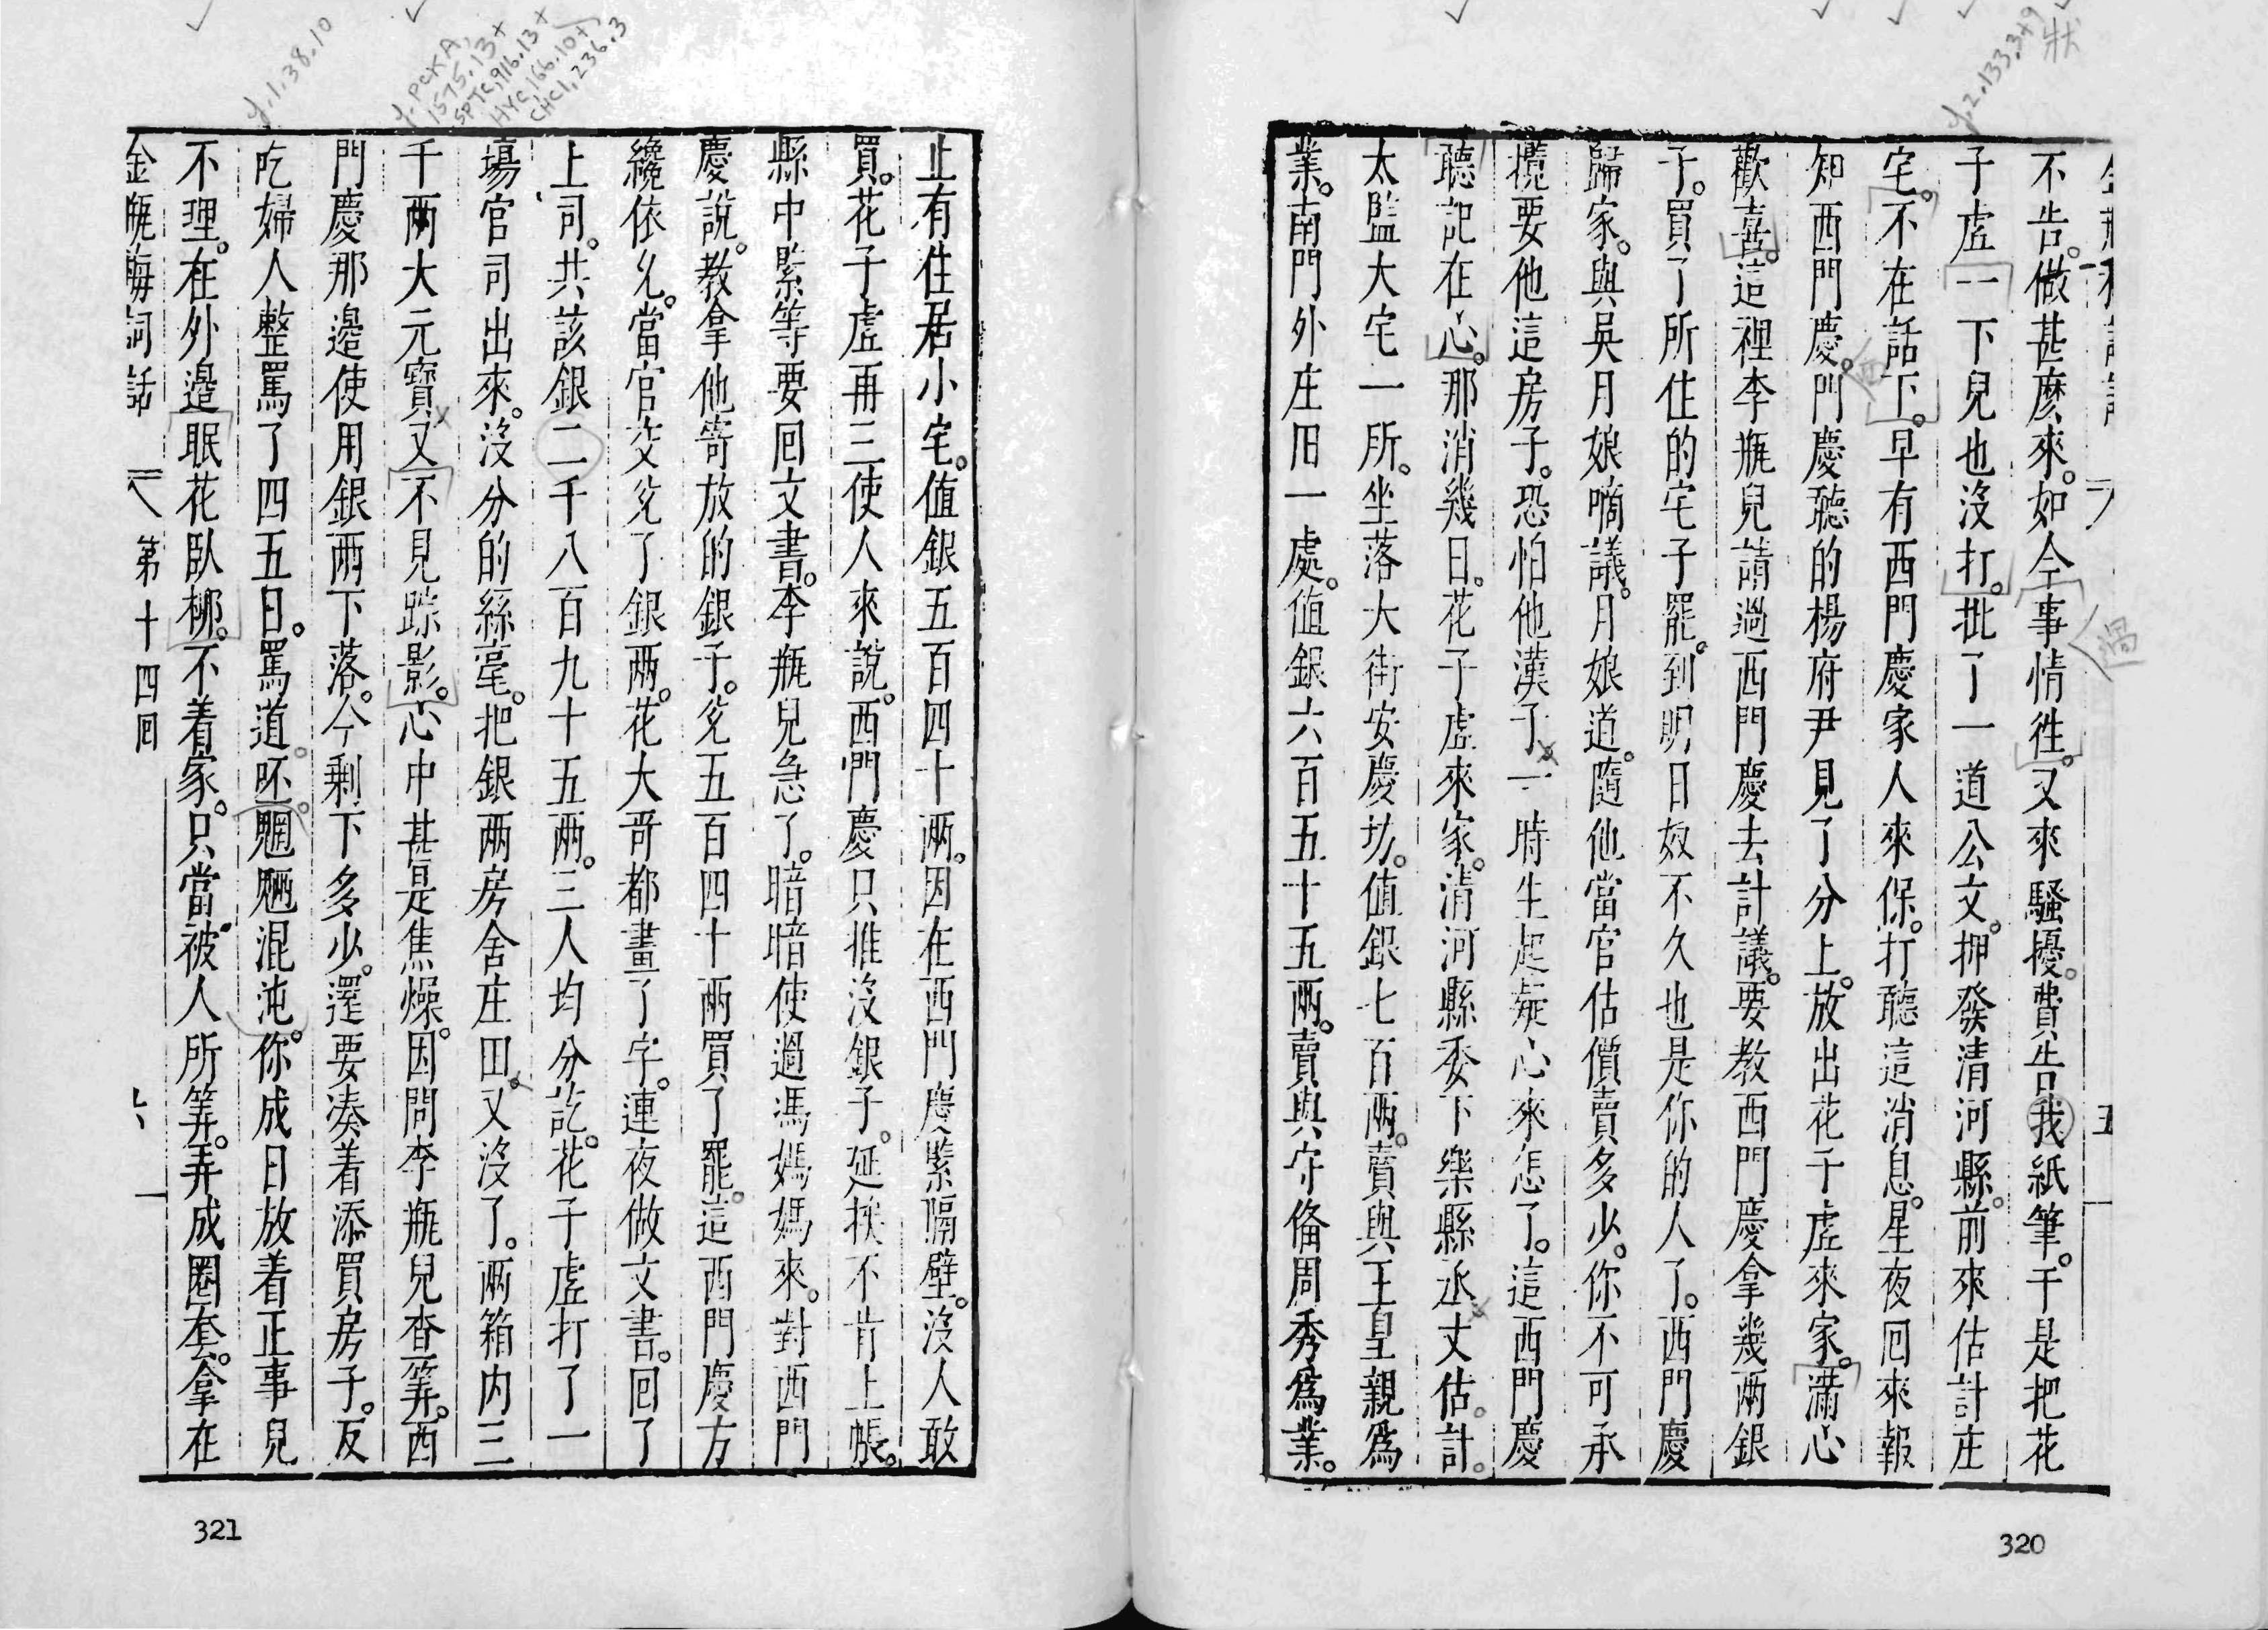 狀
y.2.133.3+9
不告。做甚麼來。如今事情徃。又來騷擾。費告我紙筆。于是把花
過
子虛一下兒也沒打。批了一道公文。押發清河縣。前來估計庄
宅。不在話下。早有西門慶家人來保。打聽這消息。星夜囘來報
知西門慶。門慶聽的楊府尹見了分上。放出花子虛來家。滿心
西
歡喜。這裡李瓶兒請過西門慶去計議。要教西門慶拿幾兩銀
子。買了所住的宅子罷。到明日奴不久也是你的人了。西門慶
歸家。與吳月娘啇議。月娘道。隨他當官估價賣多少。你不可承
攬要他這房子。恐怕他漢子一時生起疑心來怎了。這西門慶
聽記在心。那消幾日。花子虛來家。清河縣委下樂縣丞丈估。計。
太監大宅一所。坐落大街安慶坊。值銀七百兩。賣與王皇親爲
業。南門外庄田一處。值銀六百五十五兩。賣與守俻周秀爲業。
五
320
y.1.38.10
y. PCKA,
1575.13+
SPTC,916.13+
HYC,166.10+
CHC1,236.3
止有住居小宅。值銀五百四十兩。因在西門慶緊隔壁。沒人敢
買。花子虛再三使人來說。西門慶只推沒銀子。延挨不肯上帳。
縣中緊等要囘文書。李瓶兒急了。暗暗使過馮媽媽來。對西門
慶說。教拿他寄放的銀子。兌五百四十兩買了罷。這西門慶方
纔依允。當官交兌了銀兩。花大哥都畫了字。連夜做文書。回了
上司。共該銀二千八百九十五兩。三人均分訖。花子虛打了一
塲官司出來。沒分的絲毫。把銀兩房舍庄田。又沒了。兩箱内三
千兩大元寶又不見踪影。心中甚是焦燥。因問李瓶兒查筭。西
門慶那邊使用銀兩下落。今剩下多少。還要凑着添買房子。反
吃婦人整罵了四五日。罵道。呸。魍魎混沌。你成日放着正事兒
不理。在外邊眠花臥柳。不着家。只當被人所筭。弄成圈套。拿在
金瓶梅詞話 第十四囘
321